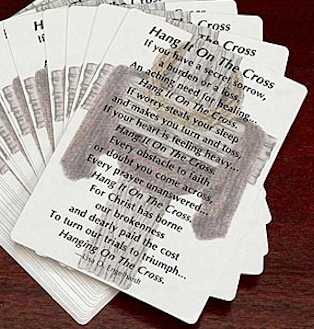 Hang It On The Cross
If you have a secret sorrow,
a burden or a loss,
An aching need for healing...
Hang It On The Cross.
If worry steals your sleep
and makes you turn and toss,
If your heart is feeling heavy...
Hang It On The Cross.
Every obstacle to faith
or doubt you come across,
Every prayer unanswered...
Hang It On The Cross.
For Christ has borne
our brokenness
and dearly paid the cost
To turn our trials to triumph...
Hanging On The Cross.
—Lisa O. Engelhardt